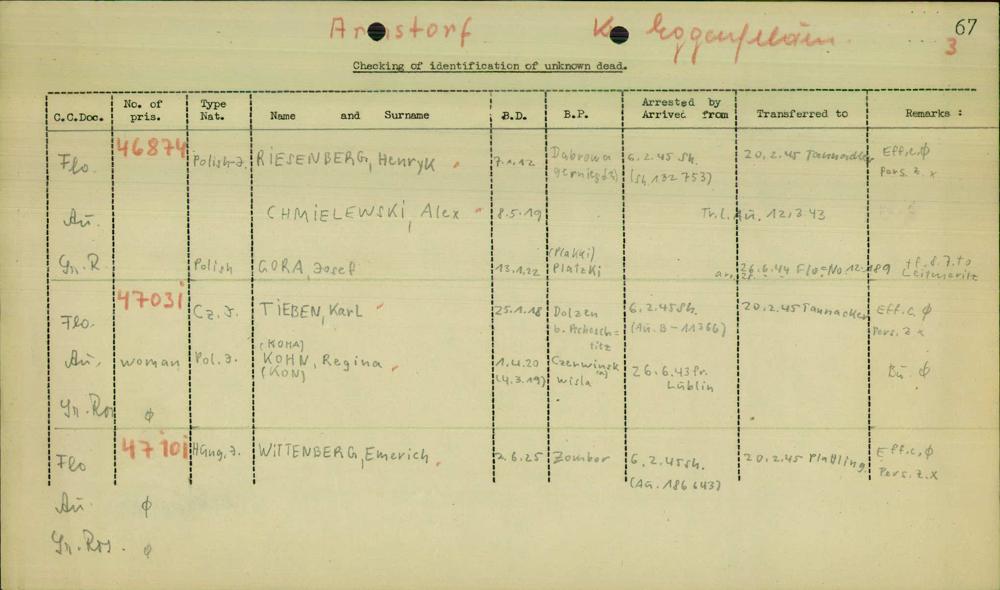 Arnstorf K. Eggenfelden 67
3
Checking of identification of unknown dead.
C.C.Doc. No. of pris. Type Nat. Name and Surname B.D. B.P. Arrested by Arrived from Transferred to Remarks :
Flo. 46874 Polish-J. RIESENBERG, Henryk 7.1.12 Dabrowa 6.2.45 Sh. (Sh 132753) 20.2.45 Eff.c. ϕ Pers. z. x
Au. CHMIELEWSKI, Alex 8.5.19 Tr.l. Au. 12.3.43
Gr. R Polish GORA, Josef 13.1.22 (Plakki) Platzki 26.6.44 Flo=No 12189 tf. 8.7. to Leitmeritz
Flo. 47031 Cz. J. TIEBEN, Karl 25.1.18 Dolzen 6.2.45 Sh. (Au. B-11366) 20.2.45 Eff.c. ϕ Pers. z x
Au. woman Pol. J. (KOHA) KOHN, Regina (KON) 1.4.20 (4.3.19) Czerwinsk wisla 26.6.43 fr. Lublin Bu. ϕ
Gr. Ros ϕ
Flo 47101 Hung. J. WITTENBERG, Emerich. 2.6.25 Zombor 6.2.45 Sh. (Au. 186643) 20.2.45 Plattling. Eff.c, ϕ Pers. z. x
Au. ϕ
Gr. Ros. ϕ